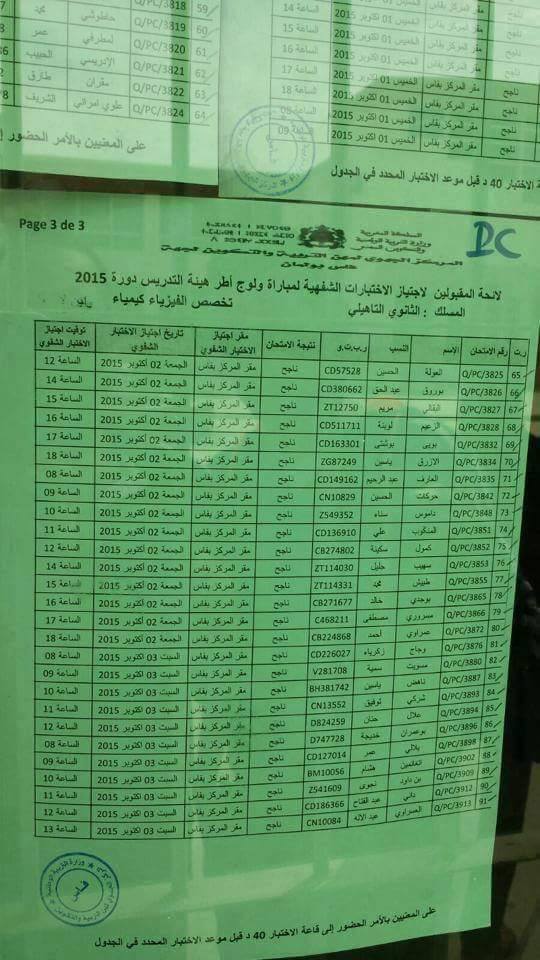 59 Q/PC/3818 حاطوشي محمد
60 Q/PC/3820 لمطرفي عمر
61 Q/PC/3821 الإدريسي الحبيب
62 Q/PC/3822 مقران طارق
64 Q/PC/3824 علوي امراني الشريف
على المعنيين بالأمر الحضور إلى
الساعة 14
الساعة 15
ناجح مقر المركز بفاس الخميس 01 أكتوبر 2015 الساعة 16
ناجح مقر المركز بفاس الخميس 01 أكتوبر 2015 الساعة 17
ناجح مقر المركز بفاس الخميس 01 أكتوبر 2015 الساعة 18
ناجح مقر المركز بفاس الخميس 01 أكتوبر 2015
ناجح مقر المركز بفاس الخميس 01 أكتوبر 2015 الساعة 09
الاختبار 40 د قبل موعد الاختبار المحدد في الجدول
Page 3 de 3
المملكة المغربية
وزارة التربية الوطنية
والتكوين المهني
المركز الجهوي لمهن التربية والتكوين لجهة
فاس بولمان
PC
لائحة المقبولين لاجتياز الاختبارات الشفهية لمباراة ولوج أطر هيئة التدريس دورة 2015
المسلك : الثانوي التاهيلي تخصص الفيزياء كيمياء
ر.ت رقم الامتحان الإسم النسب ر.ب.ت.و نتيجة الامتحان مقر اجتياز الاختبار الشفوي تاريخ اجتياز الاختبار الشفوي توقيت اجتياز الاختبار الشفوي
65 Q/PC/3825 العولة الحسين CD57528 ناجح مقر المركز بفاس الجمعة 02 أكتوبر 2015 الساعة 12
66 Q/PC/3826 بوروق عبد الحق CD380662 ناجح مقر المركز بفاس الجمعة 02 أكتوبر 2015 الساعة 14
67 Q/PC/3827 البقالي مريم ZT12750 ناجح مقر المركز بفاس الجمعة 02 أكتوبر 2015 الساعة 15
68 Q/PC/3828 الزعيم لوبنة CD511711 ناجح مقر المركز بفاس الجمعة 02 أكتوبر 2015 الساعة 16
69 Q/PC/3832 بويى بوشتى CD163301 ناجح مقر المركز بفاس الجمعة 02 أكتوبر 2015 الساعة 17
70 Q/PC/3834 الازرق ياسين ZG87249 ناجح مقر المركز بفاس الجمعة 02 أكتوبر 2015 الساعة 18
71 Q/PC/3835 العارف عبد الرحيم CD149162 ناجح مقر المركز بفاس الجمعة 02 أكتوبر 2015 الساعة 08
72 Q/PC/3842 حركات الحسين CN10829 ناجح مقر المركز بفاس الجمعة 02 أكتوبر 2015 الساعة 09
73 Q/PC/3848 داموس سناء Z549352 ناجح مقر المركز بفاس الجمعة 02 أكتوبر 2015 الساعة 10
74 Q/PC/3851 المنكوب علي CD136910 ناجح مقر المركز بفاس الجمعة 02 أكتوبر 2015 الساعة 11
75 Q/PC/3852 كمول سكينة CB274802 ناجح مقر المركز بفاس الجمعة 02 أكتوبر 2015 الساعة 12
76 Q/PC/3853 سهيب خليل ZT114030 ناجح مقر المركز بفاس الجمعة 02 أكتوبر 2015 الساعة 14
77 Q/PC/3855 طبيش محمد ZT114331 ناجح مقر المركز بفاس الجمعة 02 أكتوبر 2015 الساعة 15
78 Q/PC/3865 بوجدي خالد CB271677 ناجح مقر المركز بفاس الجمعة 02 أكتوبر 2015 الساعة 16
79 Q/PC/3866 مسروري مصطفى C468211 ناجح مقر المركز بفاس الجمعة 02 أكتوبر 2015 الساعة 17
80 Q/PC/3872 عمراوي أحمد CB224868 ناجح مقر المركز بفاس الجمعة 02 أكتوبر 2015 الساعة 18
81 Q/PC/3876 وجاج زكرياء CD226027 ناجح مقر المركز بفاس السبت 03 اكتوبر 2015 الساعة 08
82 Q/PC/3880 مسويت سمية V281708 ناجح مقر المركز بفاس السبت 03 اكتوبر 2015 الساعة 09
83 Q/PC/3887 ناهض ياسين BH381742 ناجح مقر المركز بفاس السبت 03 اكتوبر 2015 الساعة 10
84 Q/PC/3893 شركي توفيق CN13552 ناجح مقر المركز بفاس السبت 03 اكتوبر 2015 الساعة 11
85 Q/PC/3894 علال حنان D824259 ناجح مقر المركز بفاس السبت 03 اكتوبر 2015 الساعة 12
86 Q/PC/3896 بوعصران خديجة D747728 ناجح مقر المركز بفاس السبت 03 اكتوبر 2015 الساعة 08
87 Q/PC/3898 بلالي عمر CD127014 ناجح مقر المركز بفاس السبت 03 اكتوبر 2015 الساعة 09
88 Q/PC/3902 هشام BM10056 ناجح مقر المركز بفاس السبت 03 اكتوبر 2015 الساعة 10
89 Q/PC/3909 بن داود نجوى Z541609 ناجح مقر المركز بفاس السبت 03 اكتوبر 2015 الساعة 11
90 Q/PC/3912 داني عبد الفتاح CD186366 ناجح مقر المركز بفاس السبت 03 اكتوبر 2015 الساعة 12
91 Q/PC/3913 العسراوي عبد الاله CN10084 ناجح مقر المركز بفاس السبت 03 اكتوبر 2015 الساعة 13
على المعنيين بالأمر الحضور إلى قاعة الاختبار 40 د قبل موعد الاختبار المحدد في الجدول